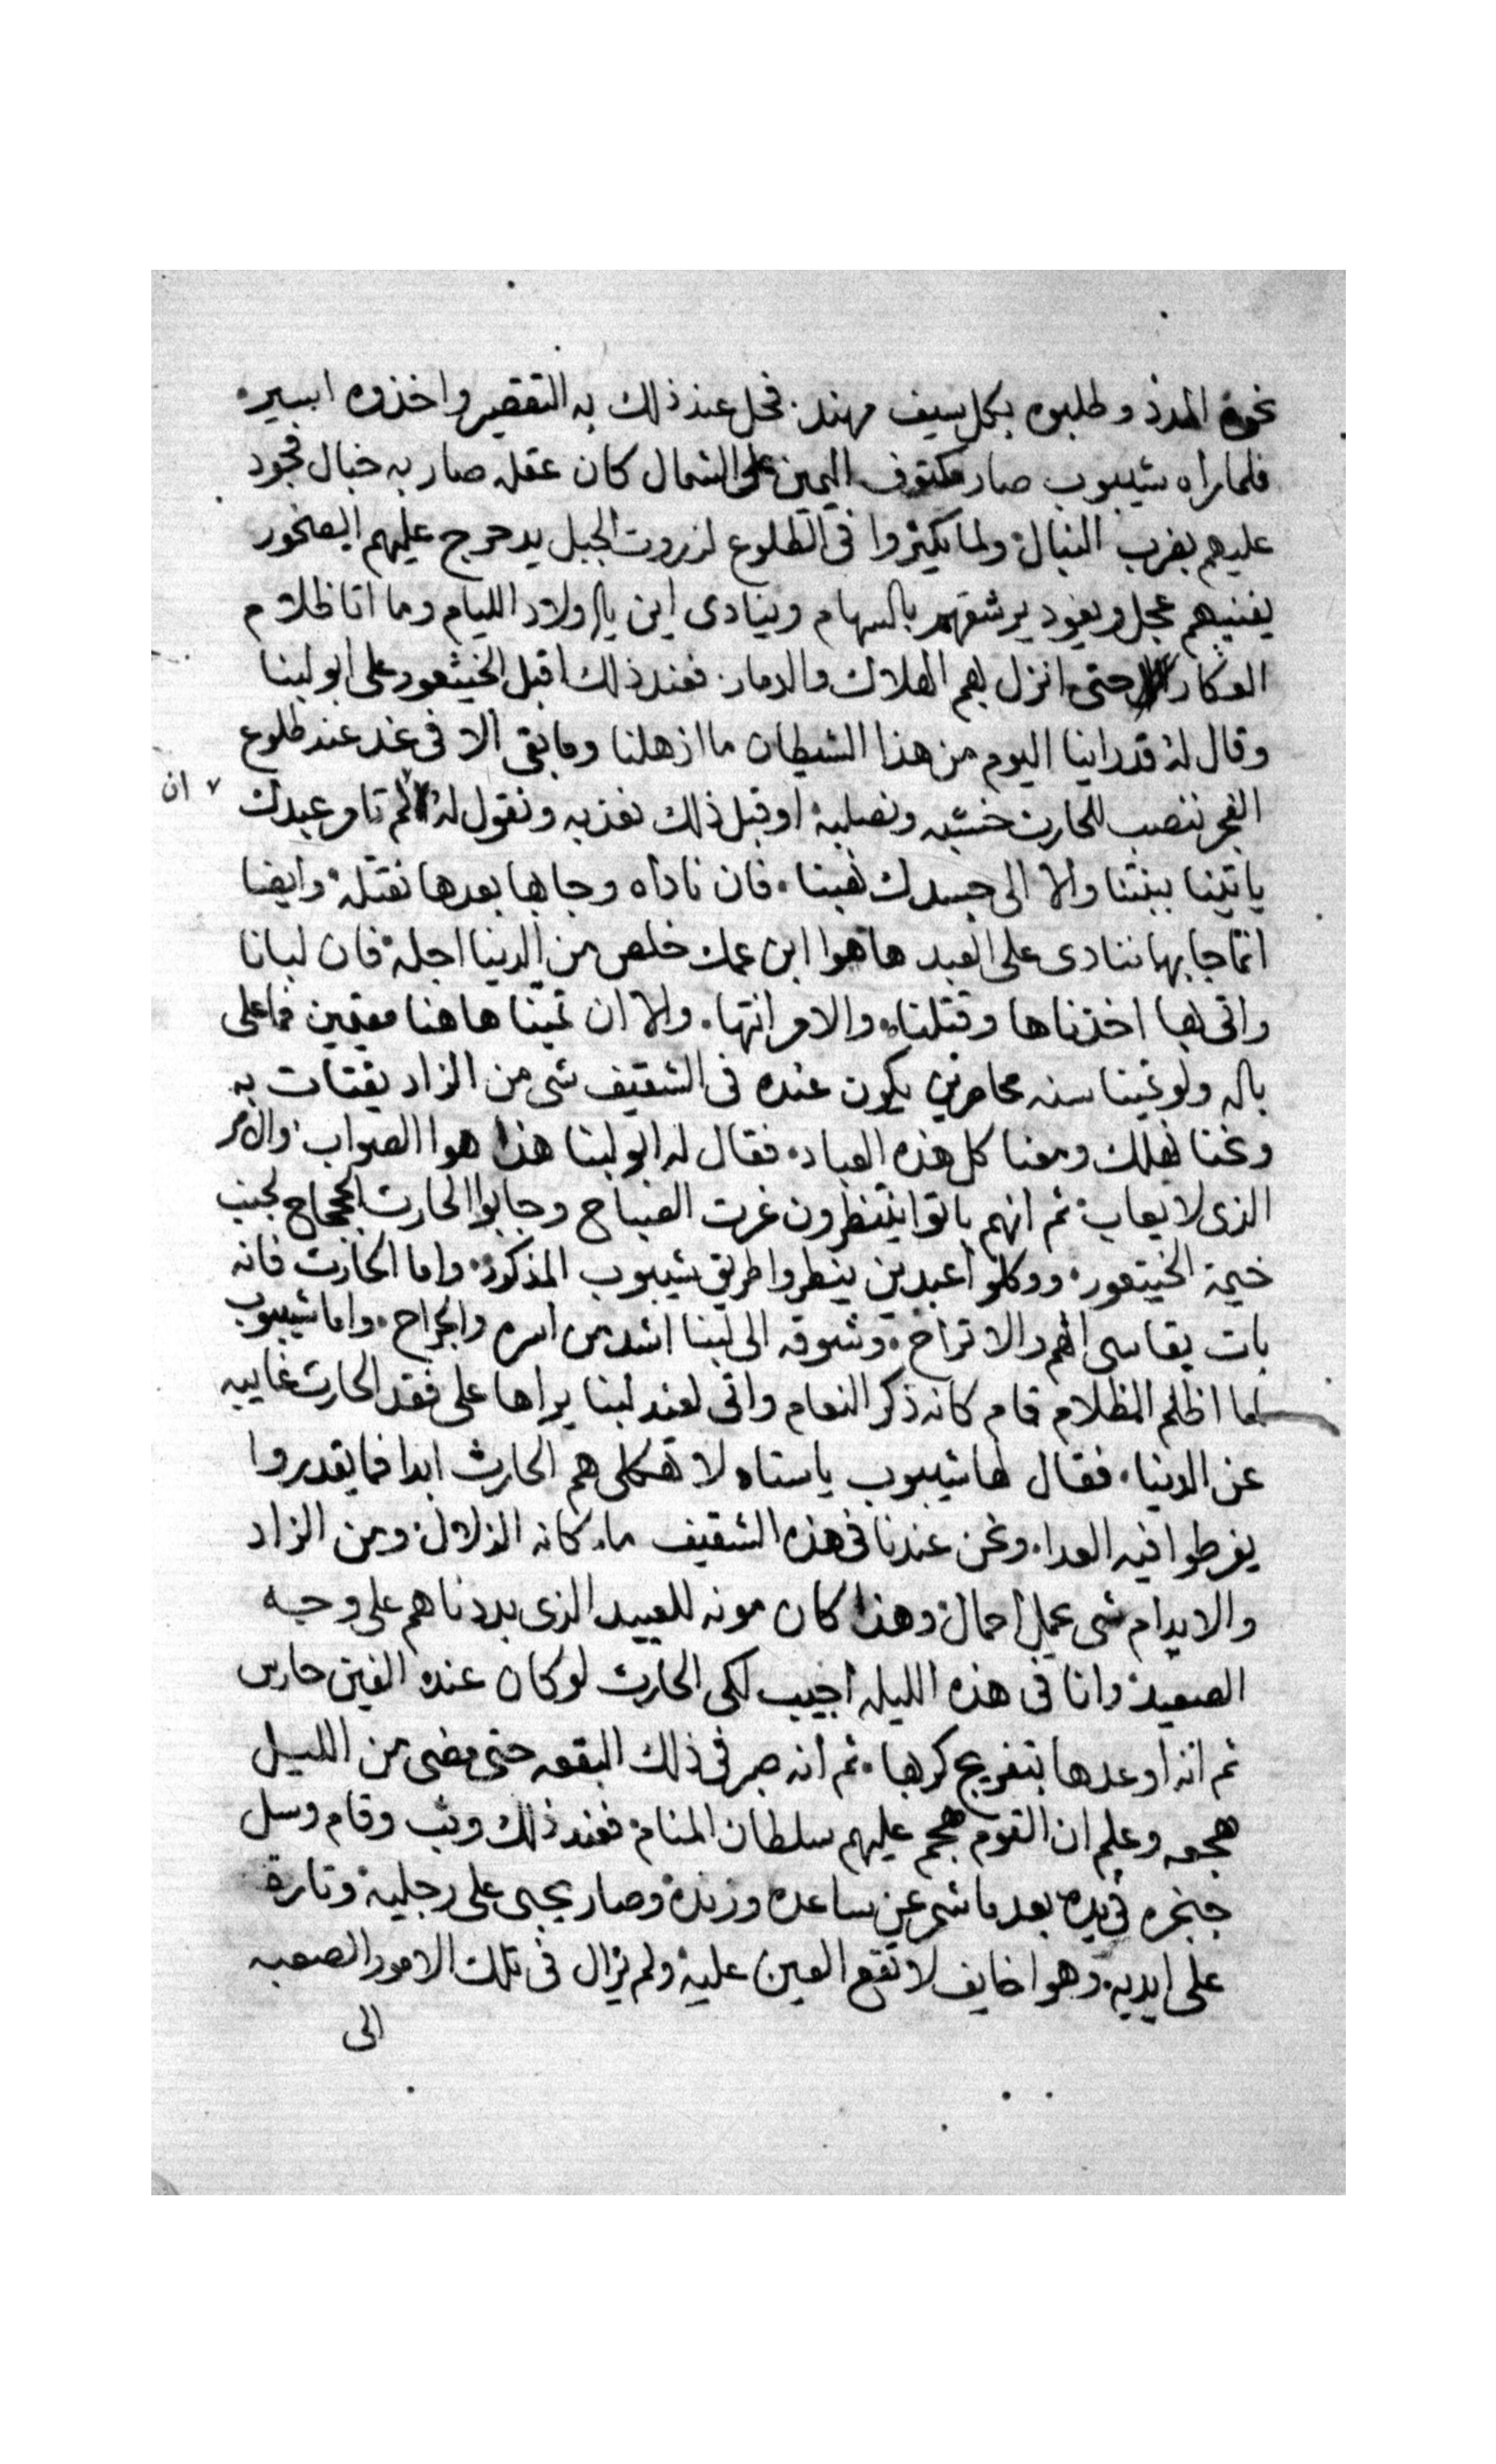 نحوة المدد وطلبوه بكل سيف مهند. فحل عند ذلك به التقصير واخذوه اسير.
فلما راه شيبوب صار مكتوف اليمين على الشمال كان عقله صار به خبال فجود
عليهم بضرب النبال ولما يكثروا فى الطلوع لزروت الجبل يدحرج عليهم الصخور
يفنيهم عجل ويعود يرشقهم بالسهام وينادى اين يا اولاد الليام وما اتا ظلام
العكار حتى انزل بهم الهلاك والدمار. فعند ذلك اقبل الخيثعور على ابو لبنا
وقال له قد راينا اليوم من هذا الشيطان ما اذهلنا وما بقى الا فى غد عند طلوع
الفجر ننصب للحارث خشبه ونصلبه او قبل ذلك نعذبه ونقول له ان لم تامر عبدك
ياتينا ببنتنا والا الى جسدك نهبنا. فان ناداه وجابها بعدها نقتله وايضا
انما جابها ننادى على العبد هاهوا ابن عمك خلص من الدنيا اجله فان لبانا
واتى بها اخذناها وقتلناه والامر انتها. والا ان تمينا هاهنا مقيمين فما على
باله ولو تمينا سنه محاصرين يكون عنده فى الشقيف شى من الزاد يقتات به
ونحنا نهلك ومعنا كل هذه العباد. فقال له ابو لبنا هذا هوا الصواب والامر
الذى لا يعاب ثم انهم باتوا ينتظرون غرت الصباح وجابوا الحارث الجحجاح لجنب
خيمة الخيتعور. ووكلوا عبدين ينطروا طريق شيبوب المذكور. واما الحارث فانه
بات يقاسى الهم والاتراح. وشوقه الى لبنا اشد من اسره والجراح. واما شيبوب
لما اظلم الظلام قام كانه ذكر النعام واتى لعند لبنا يراها على فقد الحارث غايبه
عن الدنيا. فقال لها شيبوب ياستاه لا تهكلى هم الحارث ابدا فما يقدروا
يفرطوا فيه العدا. ونحن عندنا فى هذه الشقيف ماء كانه الزلال ومن الزاد
والايدام شى عمل احمال وهذا كان مونه للعبيد الذى بددناهم على وجه
الصعيد وانا فى هذه الليله اجيب لكى الحارث لو كان عنده الفين حارس
ثم انه اوعدها بتفريج كربها. ثم انه صبر فى ذلك البقعه حتى مضى من الليل
هجعه وعلم ان القوم هجم عليهم سلطان المنام فعند ذلك وثب وقام وسل
خنجره فى يده بعد ما شمر عن ساعده وزنده وصار يحبى على رجليه وتارة
على ايديه. وهوا خايف لا تقع العين عليه ولم يزال فى تلك الامور الصعبه
الى